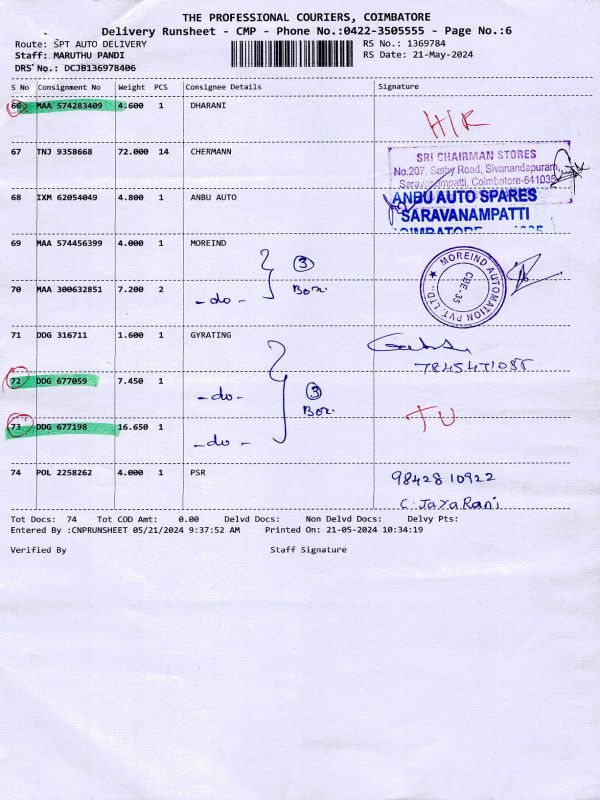 THE PROFESSIONAL COURIERS, COIMBATORE
Delivery Runsheet - CMP - Phone No.:0422-3505555 - Page No.:6
Route: SPT AUTO DELIVERY RS No.: 1369784
Staff: MARUTHU PANDI RS Date: 21-May-2024
DRS No.: DCJB136978406
S No Consignment No Weight PCS Consignee Details Signature
66 MAA 574283409 4.600 1 DHARANI
H/R
67 TNJ 9358668 72.000 14 CHERMANN
SRI CHAIRMAN STORES
No.207, Sathy Road, Sivanandapuram,
Saravanampatti, Coimbatore-641035
68 IXM 62054049 4.800 1 ANBU AUTO
ANBU AUTO SPARES
SARAVANAMPATTI
69 MAA 574456399 4.000 1 MOREIND
3
Box.
MOREIND AUTOMATION PVT. LTD.
CBE-35
70 MAA 300632851 7.200 2 -do-
71 DDG 316711 1.600 1 GYRATING
72 DDG 677059 7.450 1 -do-
3
Box.
73 DDG 677198 16.650 1 -do-
TU
74 POL 2258262 4.000 1 PSR 9842810922
C. JayaRani
Tot Docs: 74 Tot COD Amt: 0.00 Delvd Docs: Non Delvd Docs: Delvy Pts:
Entered By :CNPRUNSHEET 05/21/2024 9:37:52 AM Printed On: 21-05-2024 10:34:19
Verified By Staff Signature